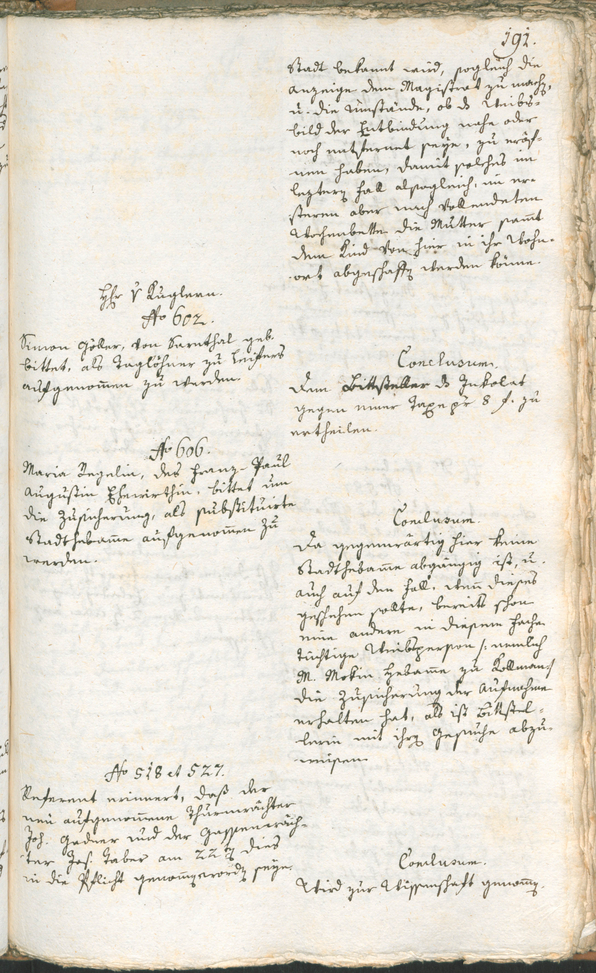 191.
Stadt bekannt wird, sogleich die
Anzeige dem Magistrat zu mach,
u. die Umstände, ob ds Weibs-
bild der Entbindung nahe oder
noch entfernet seye, zu eröf-
nen haben, damit solches im
leztern fall alsogleich, im er-
steren aber nach Vollendeten
Wochenbette die Mutter samt
dem Kind von hier in ihr Wohn-
ort abgeschaft werden könne.
Hr v Kuglern.
No 602.
Simon Göller, von Sarnthal geb.
bittet, als Taglöhner zu Leifers
aufgenommen zu werden.
Conclusum.
Dem Bittsteller ds Inkolat
gegen einer Taxe pr 8 f. zu
ertheilen.
No 606.
Maria Regelin, des Franz Paul
Augustin Ehewirthin, bittet um
die Zusicherung, als substituirte
Stadthebamme aufgenommen zu
werden.
Conclusum.
Da gegenwärtig hier keine
Stadthebamme abgängig ist, u.
auch auf den Fall, wenn dieses
geschehen sollte, bereits schon
eine andere in diesem Fache
tüchtige Weibsperson /: nemlich
M. Hebamme zu Kollman :/
die Zusicherung der Aufnahme
erhalten hat, als ist Bittstel-
lerin mit ihrem Gesuche abzu-
weisen.
No 518 et 527.
Referent erinnert, daß der
neu aufgenommene Thurmwächter
Joh. Gadner und der Gassenwäch-
ter Jos. Taber am 22ten dies
in die Pflicht genommen worden seye.
Conclusum.
Wird zur Wissenschaft genommen.